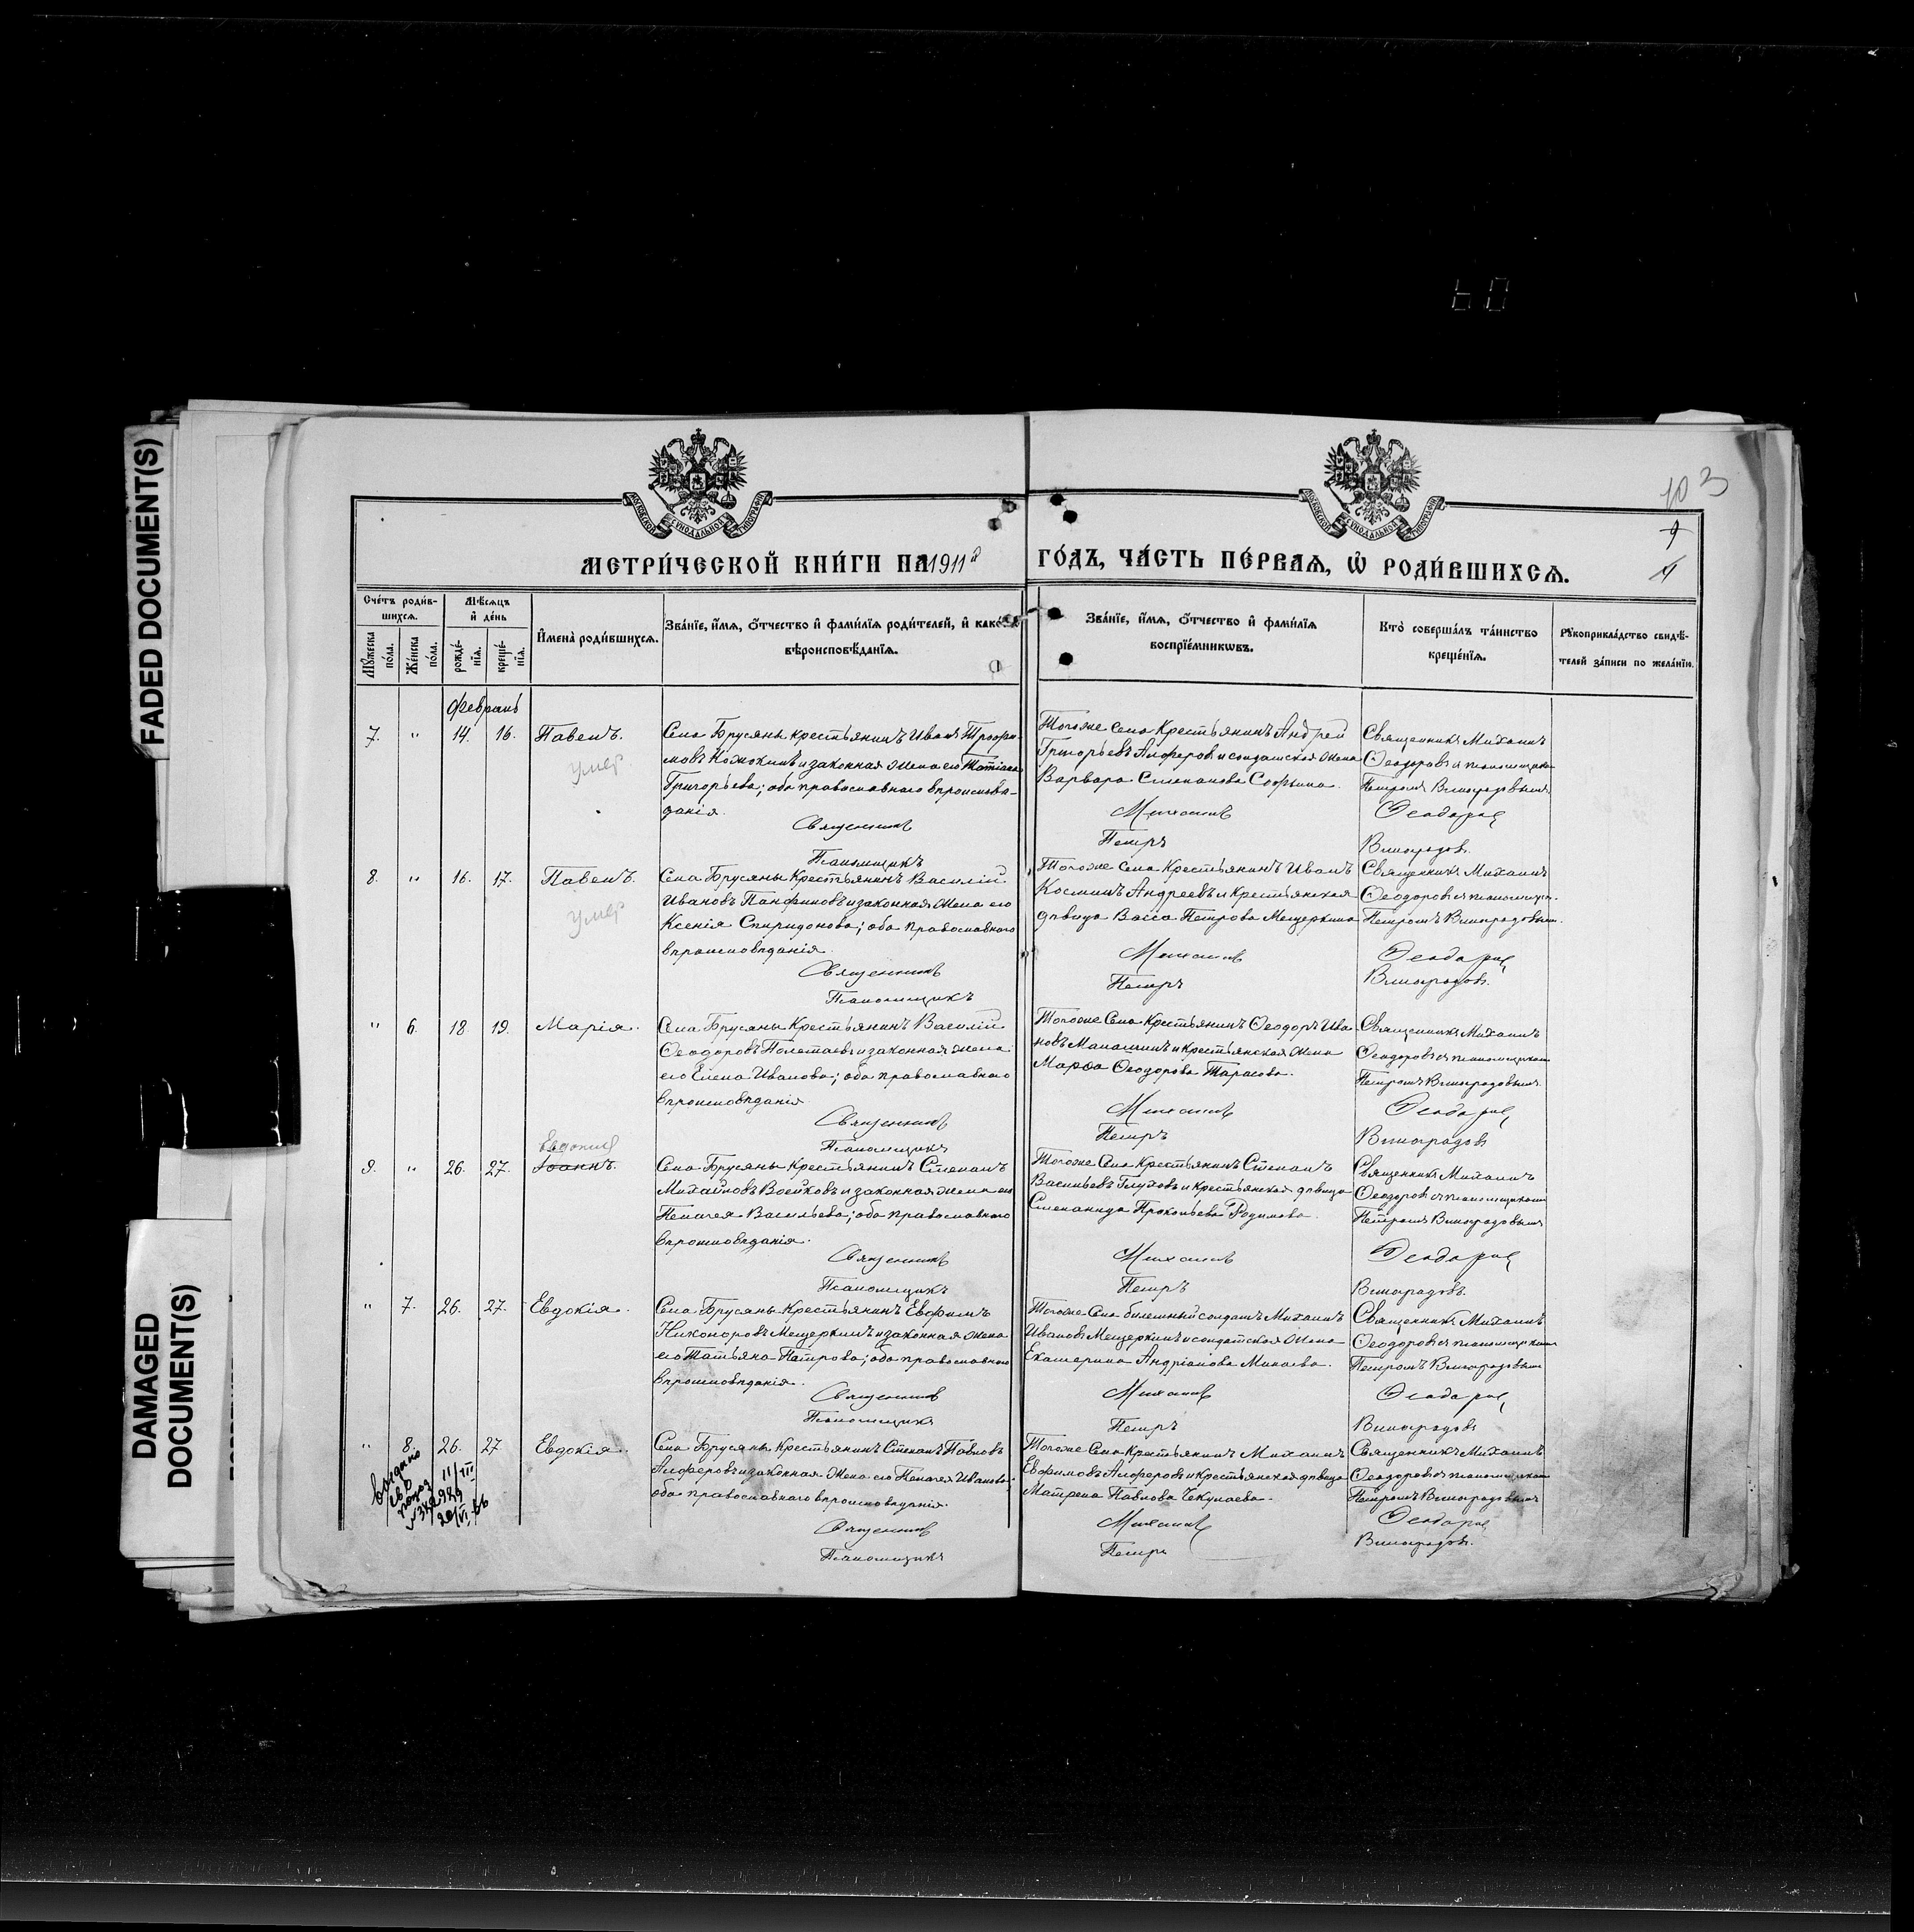 FADED DOCUMENT(S)
DAMAGED
DOCUMENT(S)
103
МЕТРИ́ЧЕСКОЙ КНИ́ГИ НА 1911й
ГО́ДЪ, ЧА́СТЬ ПЕ́РВАѦ, Ѽ РОДИ́ВШИХСѦ.
Сче́тъ роди́в-
шихсѧ.
Мѣ́сѧцъ
и҆ де́нь
Мꙋ́жеска
по́ла.
Же́нска
по́ла.
рожде́-
нїѧ.
креще́-
нїѧ.
И҆мена̀ роди́вшихсѧ.
Зва́нїе, и҆́мѧ, ѻ҆́тчество и҆ фами́лїѧ роди́телей, и҆ како́
вѣроисповѣ́данїѧ.
Зва́нїе, и҆́мѧ, ѻ҆́тчество и҆ фами́лїѧ
воспрїе́мникѡвъ.
Кто̀ соверша́лъ та́инство
креще́нїѧ.
Рꙋкоприкла́дство свидѣ́-
телей за́писи по жела́нїю.
Февраль
7. " 14. 16. Павелъ.
умер
Села Брусяны крестьянинъ Иванъ Трофи-
мовъ Кожокинъ и законная жена его Татіана
Григорьева; оба православнаго вѣроисповѣ-
данія.
Священникъ
Псаломщикъ
Тогоже села крестьянинъ Андрей
Григорьевъ Алферовъ и солдатская жена
Варвара Степанова Софьина.
Михаилъ
Петръ
Священникъ Михаилъ
Ѳеодоровъ съ псаломщикомъ
Петромъ Виноградовымъ.
Ѳеодоровъ
Виноградовъ.
8. " 16. 17. Павелъ.
умер
Села Брусяны крестьянинъ Василій
Ивановъ Панфиловъ и законная жена его
Ксенія Спиридонова; оба православнаго
вѣроисповѣданія.
Священникъ
Псаломщикъ
Тогоже села крестьянинъ Иванъ
Косминъ Андреевъ и крестьянская
дѣвица Васса Петрова Мещеркина
Михаилъ
Петръ
Священникъ Михаилъ
Ѳеодоровъ съ псаломщик.
Петромъ Виноградовым.
Ѳеодоровъ
Виноградовъ.
" 6. 18. 19. Марія.
Села Брусяны крестьянинъ Василій
Ѳеодоровъ Полетаевъ и законная жена
его Елена Иванова; оба православнаго
вѣроисповѣданія
Священникъ
Псаломщикъ
Тогоже села крестьянинъ Ѳеодоръ Ива
новъ Малашинъ и крестьянская жена
Марѳа Ѳеодорова Тарасова.
Михаилъ
Петръ
Священникъ Михаилъ
Ѳеодоровъ съ псаломщикомъ
Петромъ Виноградовымъ.
Ѳеодоровъ
Виноградовъ
Евдокия
9. " 26. 27. Іоаннъ.
Села Брусяны крестьянинъ Степанъ
Михайловъ Воейковъ и законная жена его
Пелагея Васильева; оба православнаго
вѣроисповѣданія.
Священникъ
Псаломщикъ
Тогоже села крестьянинъ Степанъ
Васильевъ Глуховъ и крестьянская дѣвица
Степанида Прокопьева Родимова.
Михаилъ
Петръ
Священникъ Михаилъ
Ѳеодоровъ съ псаломщикомъ
Петромъ Виноградовымъ
Ѳеодоровъ
Виноградовъ.
" 7. 26. 27. Евдокія.
Села Брусяны крестьянинъ Евфимъ
Никоноровъ Мещеркинъ и законная жена
его Татьяна Петрова; оба православнаго
вѣроисповѣданія.
Священникъ
Псаломщикъ
Тогоже села билетный солдатъ Михаилъ
Ивановъ Мещеркинъ и солдатская жена
Екатерина Андріанова Минаева.
Михаилъ
Петръ
Священникъ Михаилъ
Ѳеодоровъ съ псаломщикомъ
Петромъ Виноградовымъ
Ѳеодоровъ
Виноградовъ
" 8. 26. 27 Евдокія.
Села Брусяны крестьянинъ Степанъ Павловъ
Алферовъ и законная жена его Пелагея Иванова;
оба православнаго вѣроисповѣданія.
Священникъ
Псаломщикъ
Тогоже села крестьянинъ Михаилъ
Евфимовъ Алферовъ и крестьянская дѣвица
Матрена Павлова Чекулаева.
Михаилъ
Петръ
Священникъ Михаилъ
Ѳеодоровъ съ псаломщикомъ
Петромъ Виноградовымъ
Ѳеодоровъ
Виноградовъ.
выдано